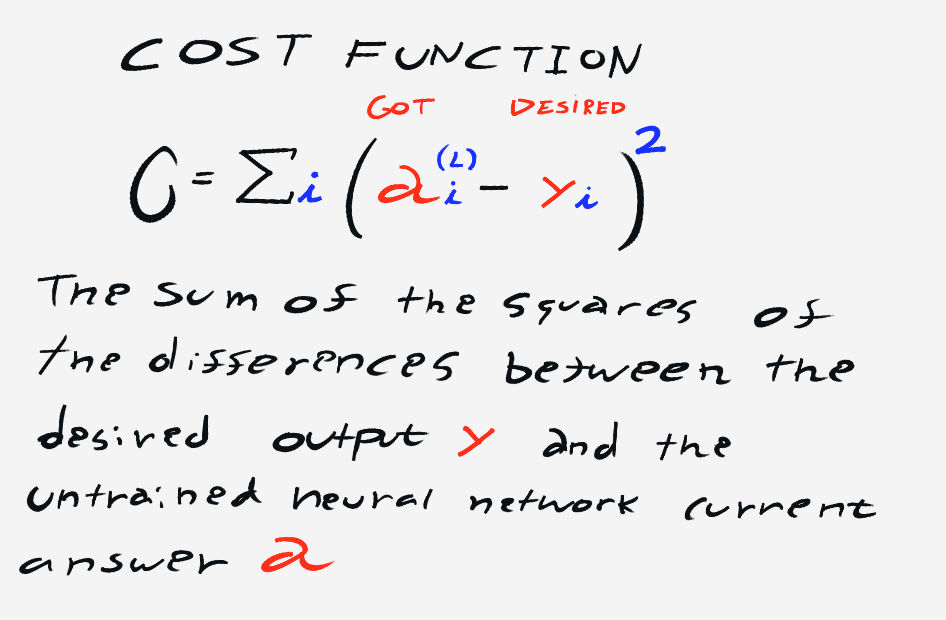 COST FUNCTION
GOT DESIRED
C = Σi (ai(L) - yi)2
The sum of the squares of
the differences between the
desired output y and the
untrained neural network current
answer a